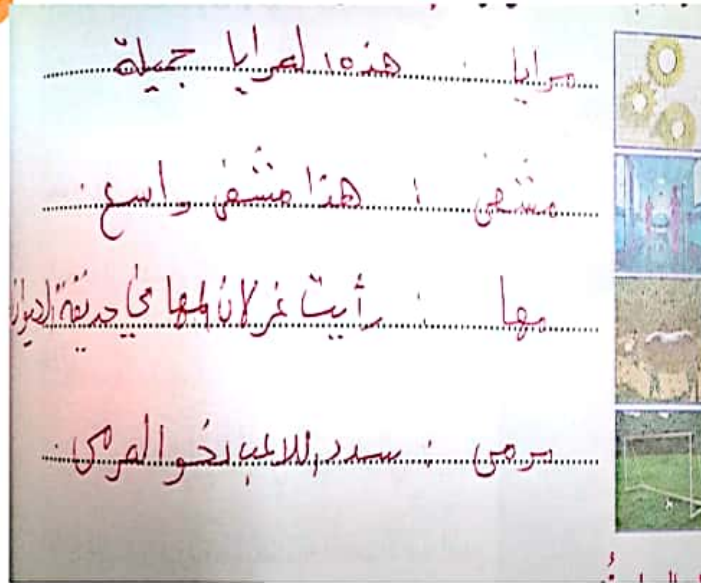 مرايا : هذه المرايا جميلة
مشفى : هذا مشفى واسع.
مها : رأيت غزلان المها في حديقة الحيوان
مرمى : سدد اللاعب نحو المرمى.